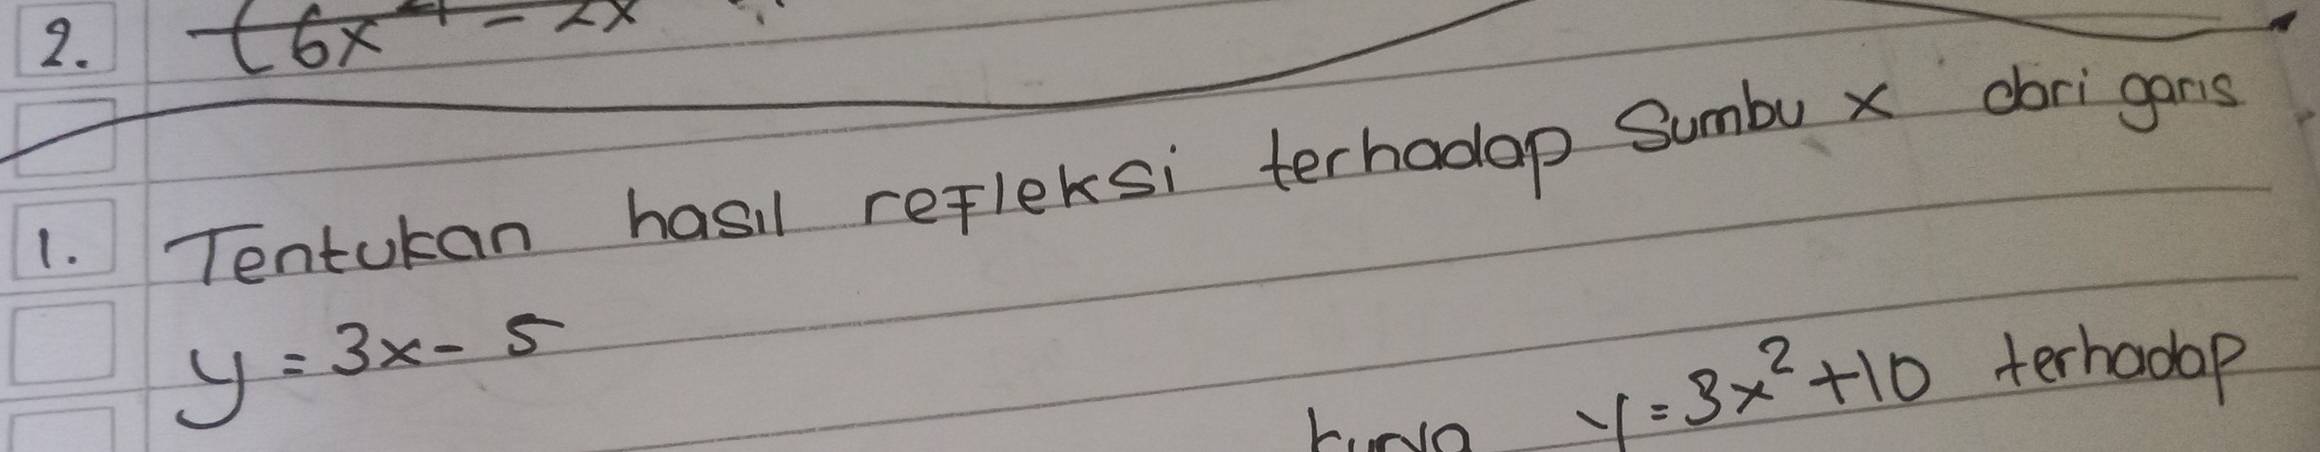 2. (6x⁴ - 2x
1. Tentukan hasil refleksi terhadap Sumbu x dari garis
y = 3x - 5
kurva y = 3x² + 10 terhadap